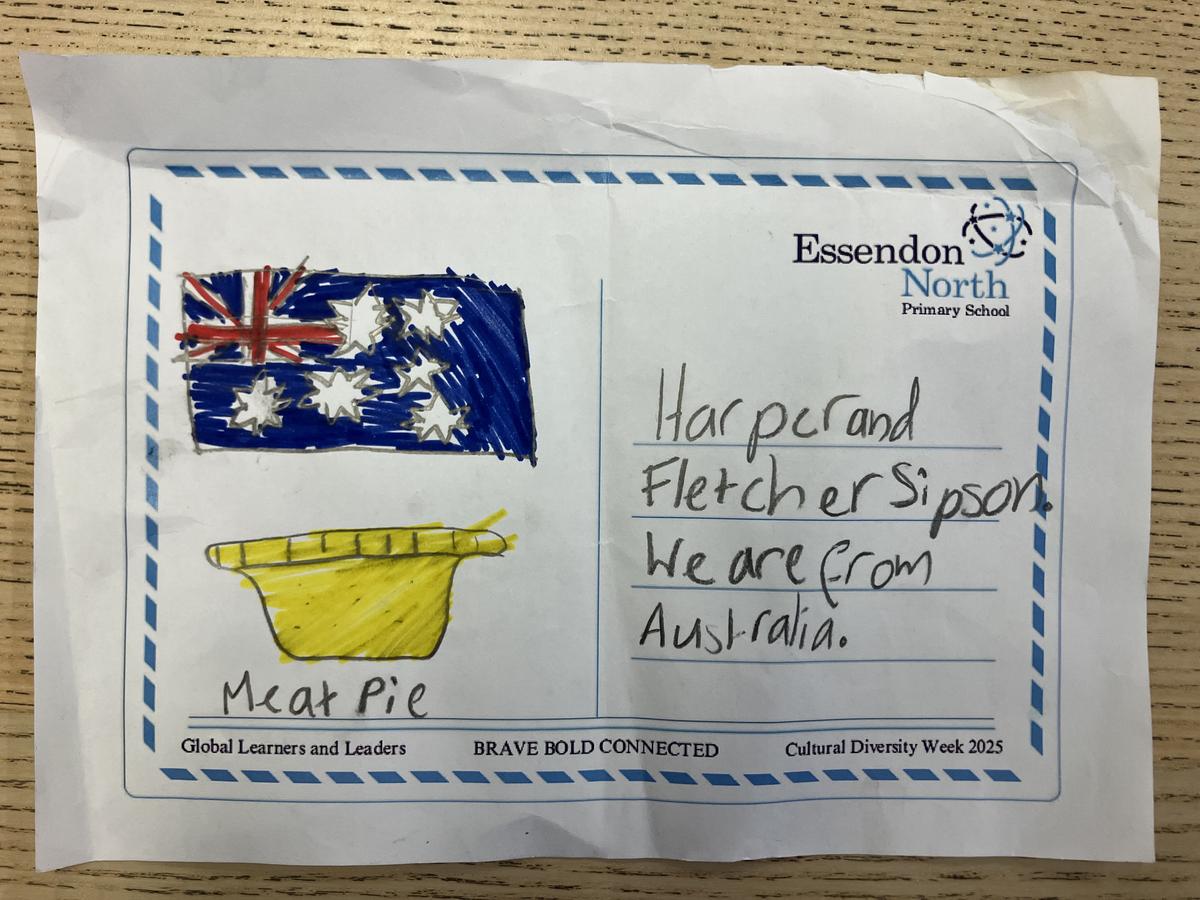 Essendon
North
Primary School
Harper and
Fletcher Sipson.
We are from
Australia.
Meat Pie
Global Learners and Leaders BRAVE BOLD CONNECTED Cultural Diversity Week 2025